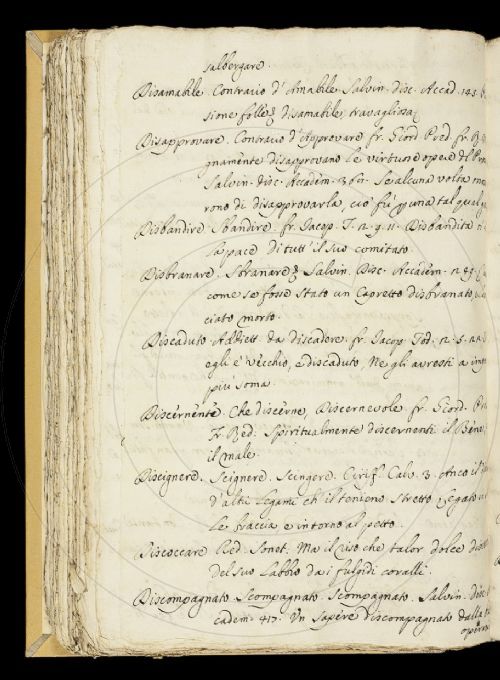 salbergare.
Disamabile. Contrario d'Amabile Salvin. disc. Accad. 145.
sione folle, e disamabile, travagliosa
Disapprovare. Contrario d'Approvare fr. Giord. Pred. fr. R.
gnamente disapprovano le virtuose opere del
Salvin. disc. Accadem. 360. Se alcuna volta
rono di disapprovarla, ciò fu una tal
Disbandire Sbandire. fr. Jacop. T. 2. 9. 11. Disbandita n'
la pace di tutt' il suo comitato.
Disbranare. Sbranare Salvin. Disc. Accadem. 2.
come se fosse stato un Capretto disbranato,
ciato morto.
Discaduto Addiett. da discadere. fr. Jacop. Tod. 2. 5.
egli è vecchio, e discaduto, Ne gli avresti a
piu soma.
Discernente. Che discerne, Discernevole fr. Giord.
Fr. Red: Spiritualmente discernenti il Bene,
il male.
Discignere. Scignere. Scingere. Ciriff. Calv. 3. Anco il
d'altri legami ch' il tenieno stretto, Legato
le braccia e intorno al petto.
Discoccare Red. Sonet. Ma il riso che talor dolce
Del suo labbro da i fulgidi coralli.
Discompagnato Scompagnato. Scompagnato. Salvin. disc.
cadem. 417. Un sapere discompagnato dalla